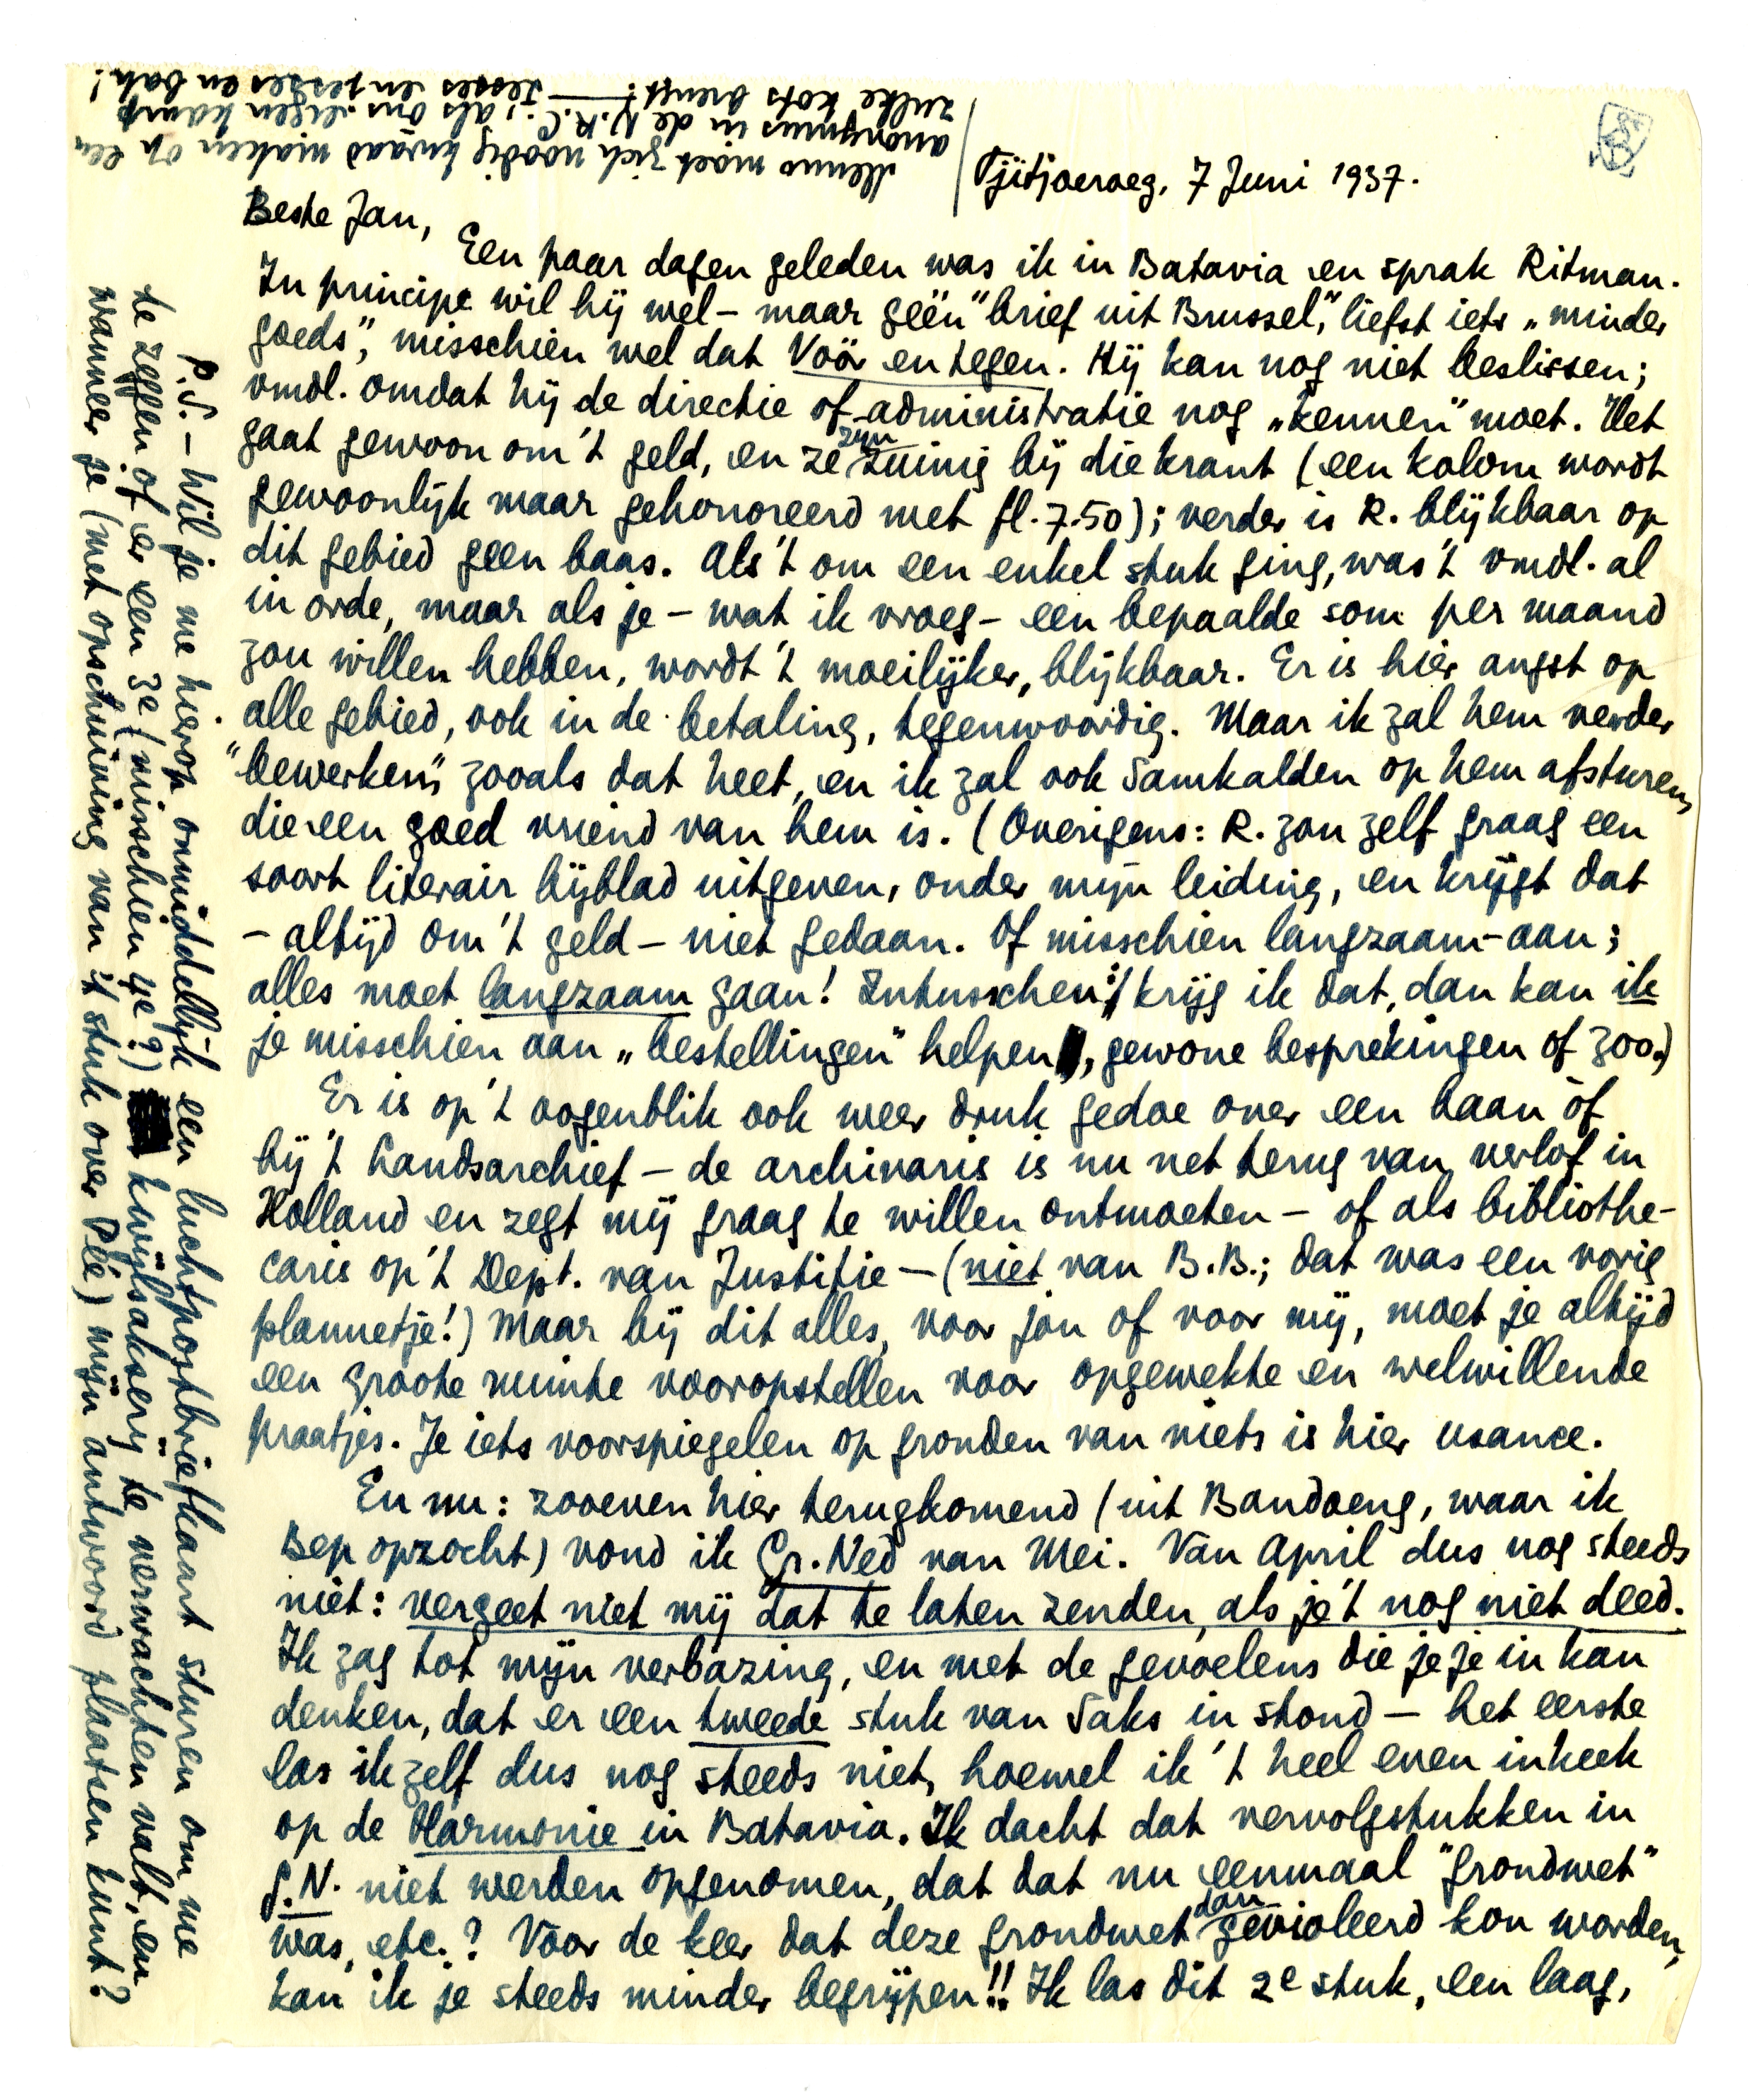 Tjitjoeroeg, 7 Juni 1937.
Beste Jan,
Een paar dagen geleden was ik in Batavia en sprak Ritman.
In principe wil hij wel – maar géén "brief uit Brussel", liefst iets „minder
goeds", misschien wel dat Vóór en tegen. Hij kan nog niet beslissen;
vmdl. omdat hij de directie of administratie nog „kennen" moet. Het
gaat gewoon om 't geld, en ze zijn zuinig bij die krant (een kolom wordt
gewoonlijk maar gehonoreerd met fl. 7.50); verder is R. blijkbaar op
dit gebied geen baas. Als 't om een enkel stuk ging, was 't vmdl. al
in orde, maar als je – wat ik vroeg – een bepaalde som per maand
zou willen hebben, wordt 't moeilijker, blijkbaar. Er is hier angst op
alle gebied, ook in de betaling, tegenwoordig. Maar ik zal hem verder
"bewerken", zooals dat heet, en ik zal ook Samkalden op hem afsturen,
die een goed vriend van hem is. (Overigens: R. zou zelf graag een
soort literair bijblad uitgeven, onder mijn leiding, en krijgt dat
– altijd om 't geld – niet gedaan. Of misschien langzaam-aan;
alles moet langzaam gaan! Intusschen: krijg ik dat, dan kan ik
je misschien aan „bestellingen" helpen, gewone besprekingen of zoo.)
Er is op 't oogenblik ook weer druk gedoe over een baan òf
bij 't Landsarchief – de archivaris is nu net terug van verlof in
Holland en zegt mij graag te willen ontmoeten – of als bibliothe-
caris op 't Dept. van Justitie – (niet van B.B.; dat was een vorig
plannetje!) Maar bij dit alles, voor jou of voor mij, moet je altijd
een groote ruimte vooropstellen voor opgewekte en welwillende
praatjes. Je iets voorspiegelen op gronden van niets is hier usance.
En nu: zooeven hier terugkomend (uit Bandoeng, waar ik
Bep opzocht) vond ik Gr. Ned van Mei. Van April dus nog steeds
niet: vergeet niet mij dat te laten zenden, als je 't nog niet deed.
Ik zag tot mijn verbazing, en met de gevoelens die je je in kan
denken, dat er een tweede stuk van Saks in stond – het eerste
las ik zelf dus nog steeds niet, hoewel ik 't heel even inkeek
op de Harmonie in Batavia. Ik dacht dat vervolgstukken in
G.N. niet werden opgenomen, dat dat nu eenmaal "grondwet"
was, etc.? Voor de keer dat deze grondwet dan gevioleerd kon worden,
kan ik je steeds minder begrijpen!! Ik las dit 2e stuk, een laag,
P.S. – Wil je me hierop onmiddellijk een luchtpostbriefkaart sturen om me
te zeggen of er een 3e (misschien 4e?) kwijlsakserij te verwachten valt, en
wanneer je (met opschuiving van 't stuk over Plé) mijn antwoord plaatsen kunt?
Menno moet zich noodig kwaad maken op een
anonymus in de N.R.C.; als ons eigen kamp
zulke kots brengt! — Jesses en jesses en bah!